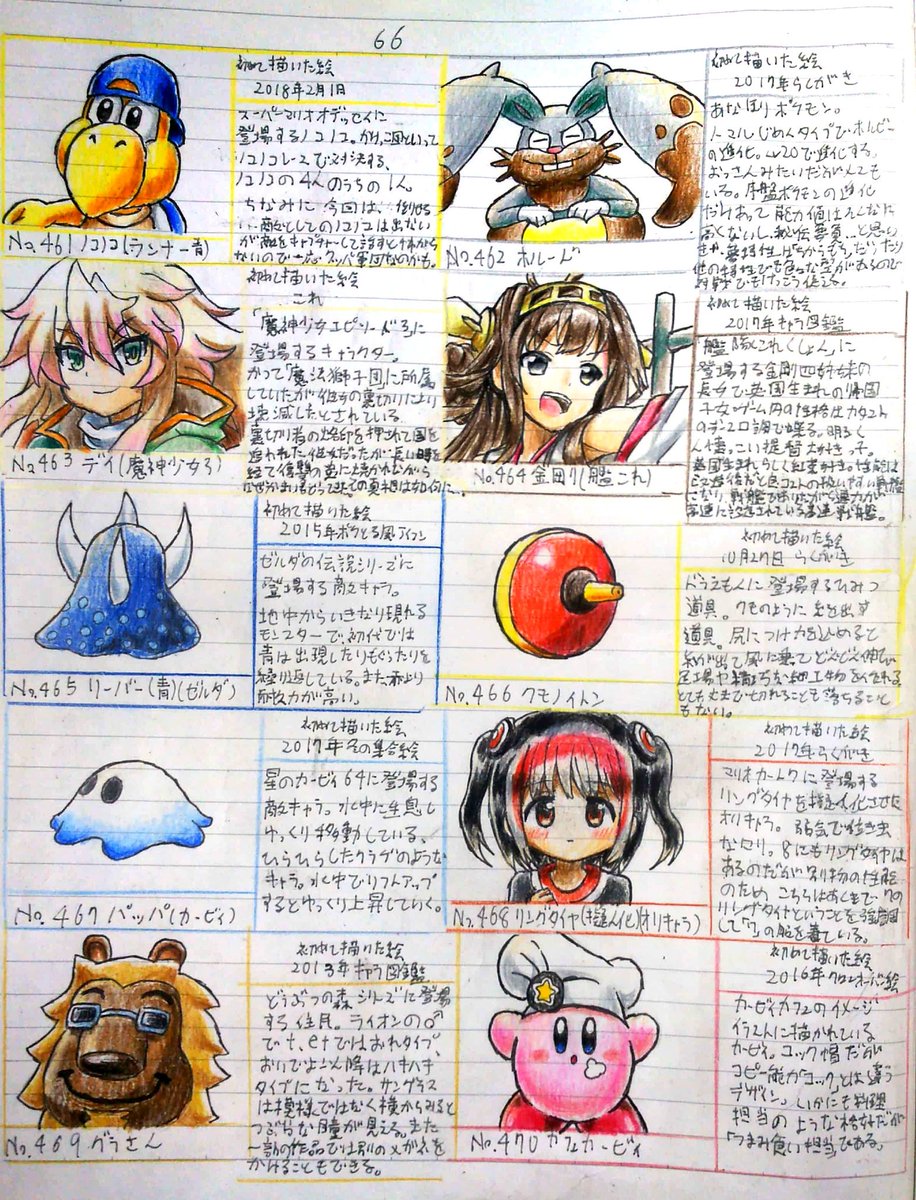 66
初めて描いた絵
2018年2月1日
スーパーマリオオデッセイに
登場するノコノコ。
ノコノコレースで対決する、
ノコノコの4人のうちの1人。
ちなみに今回は、
敵としてのノコノコは出ないが
No.461 ノコノコ(ランナー青)
初めて描いた絵
2017年らくがき
あなほりポケモン。
ノーマルじめんタイプでホルビー
の進化。Lv20で進化する。
いる。序盤ポケモンの進化
だけあって能力値は
No.462 ホルード
初めて描いた絵
これ
「魔神少女エピソード3」に
登場するキャラクター。
かつて「魔法獅子団」に所属
していたが彼女の裏切りにより
壊滅したとされている。
裏切り者の烙印を押されて国を
追われた彼女だったが長い時を
経て復讐の炎に焼かれながら
No.463 デイ(魔神少女3)
初めて描いた絵
2017年キャラ図鑑
「艦隊これくしょん」に
登場する金剛四姉妹の
長女で英国生まれの帰国
子女。
口調で喋る。明るく
人懐っこい提督大好きっ子。
英国生まれらしく紅茶好き。性能は
No.464 金剛(艦これ)
初めて描いた絵
2015年ポケとる風アイコン
ゼルダの伝説シリーズに
登場する敵キャラ。
地中からいきなり現れる
モンスターで、初代では
青は出現したりもぐったりを
繰り返している。また赤より
耐久力が高い。
No.465 リーバー(青)(ゼルダ)
初めて描いた絵
10月27日 らくがき
ドラえもんに登場するひみつ
道具。クモのように糸を出す
道具。尻につけ力を込めると
糸が出て風に乗ってどんどん伸び、
とても丈夫で切れることも落ちること
もない。
No.466 クモノイトン
初めて描いた絵
2017年冬の集合絵
星のカービィ64に登場する
敵キャラ。水中に生息し
ゆっくり移動している、
ひらひらしたクラゲのような
キャラ。水中でリフトアップ
するとゆっくり上昇していく。
No.467 パッパ(カービィ)
初めて描いた絵
2017年らくがき
マリオカート7に登場する
リングタイヤを擬人化させた
オリキャラ。弱気で泣き虫
な女の子。8にもリングタイヤは
あるのだが別物の性能
のため、こちらはあくまで7の
リングタイヤということを強調
して「7」の服を着ている。
No.468 リングタイヤ(擬人化)(オリキャラ)
初めて描いた絵
2013年キャラ図鑑
どうぶつの森シリーズに登場
する住民。ライオンの♂
で+、e+ではおれタイプ、
おいでよ以降はハキハキ
タイプになった。サングラス
は模様ではなく横からみると
つぶらな瞳が見える。また
一部の作品では別のメガネを
かけることもできる。
No.469 グラさん
初めて描いた絵
2016年クロスオーバー絵
カービィカフェのイメージ
イラストに描かれている
カービィ。コック帽だが
コピー能力「コック」とは違う
デザイン。いかにも料理
担当のような格好だが
「つまみ食い担当」である。
No.470 カフェカービィ